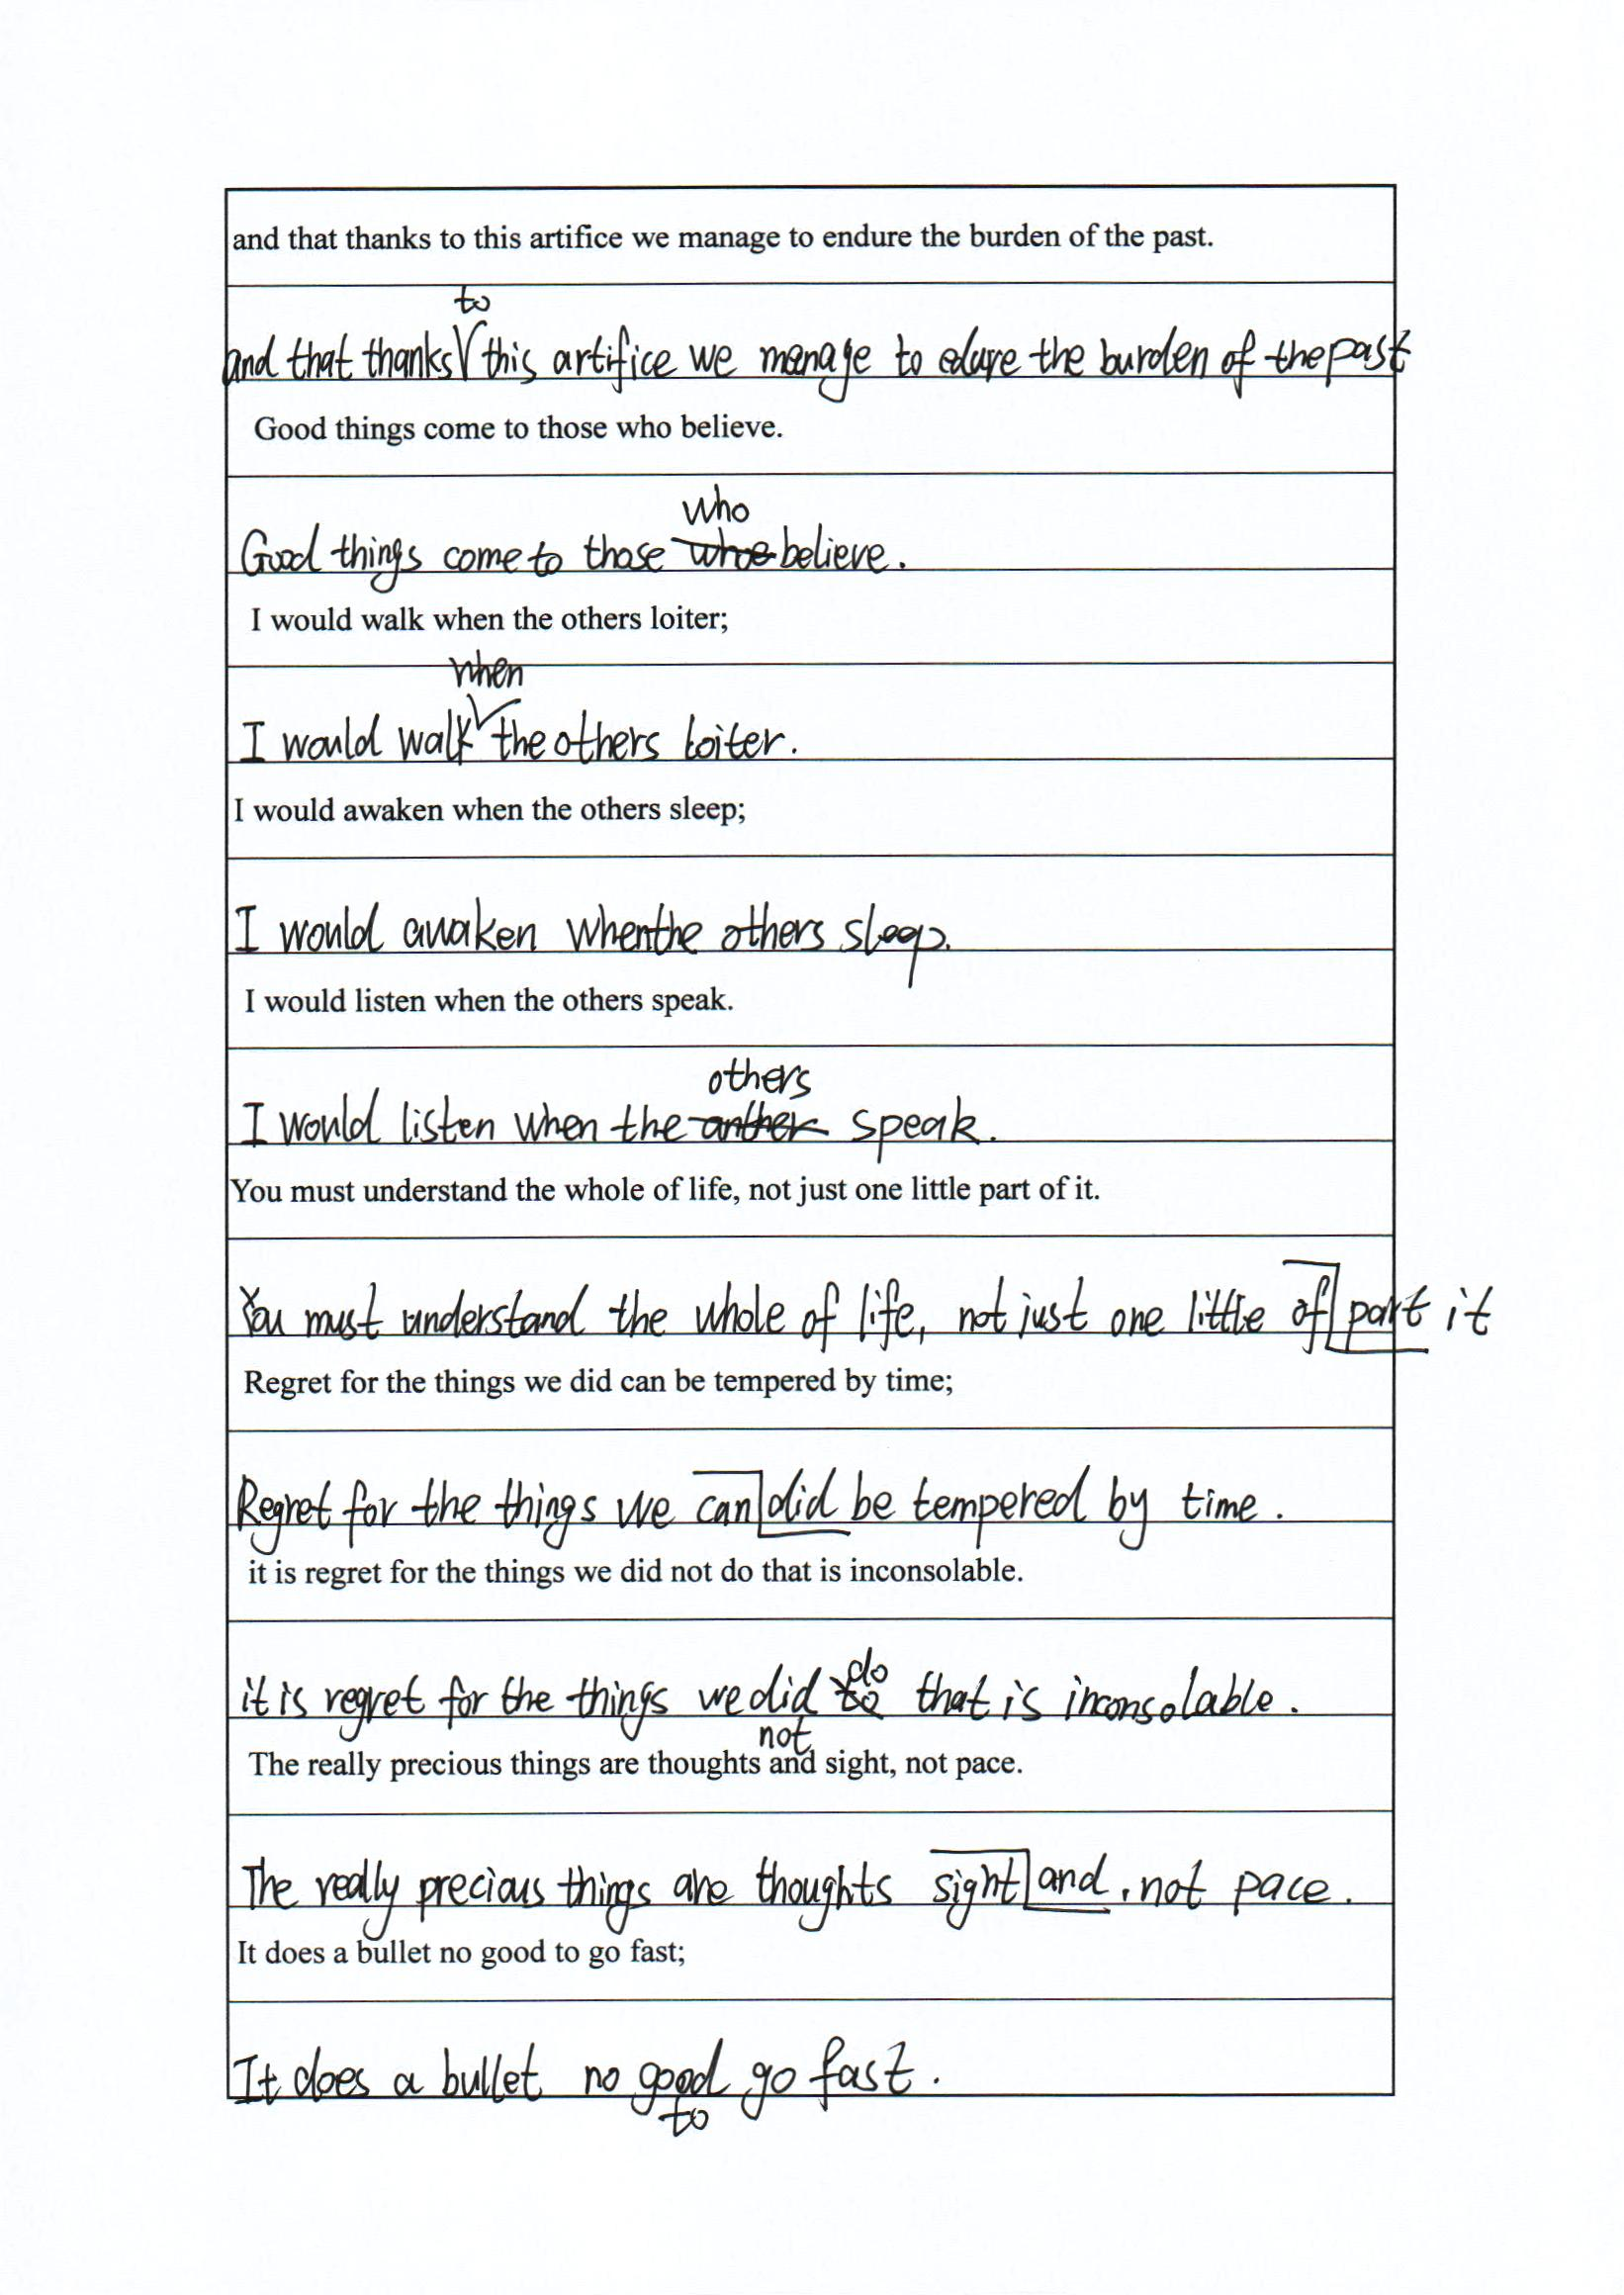 and that thanks to this artifice we manage to endure the burden of the past.
to
and that thanks this artifice we menage to edure the burden of the past
Good things come to those who believe.
who
Good things come to those whoe believe.
I would walk when the others loiter;
when
I would walk the others loiter.
I would awaken when the others sleep;
I would awaken when the others sleep.
I would listen when the others speak.
others
I would listen when the anther speak.
You must understand the whole of life, not just one little part of it.
You must understand the whole of life, not just one little of part it
Regret for the things we did can be tempered by time;
Regret for the things we can did be tempered by time.
it is regret for the things we did not do that is inconsolable.
do
it is regret for the things we did to that is inconsolable.
not
The really precious things are thoughts and sight, not pace.
The really precious things are thoughts sight and, not pace.
It does a bullet no good to go fast;
It does a bullet no good go fast.
to